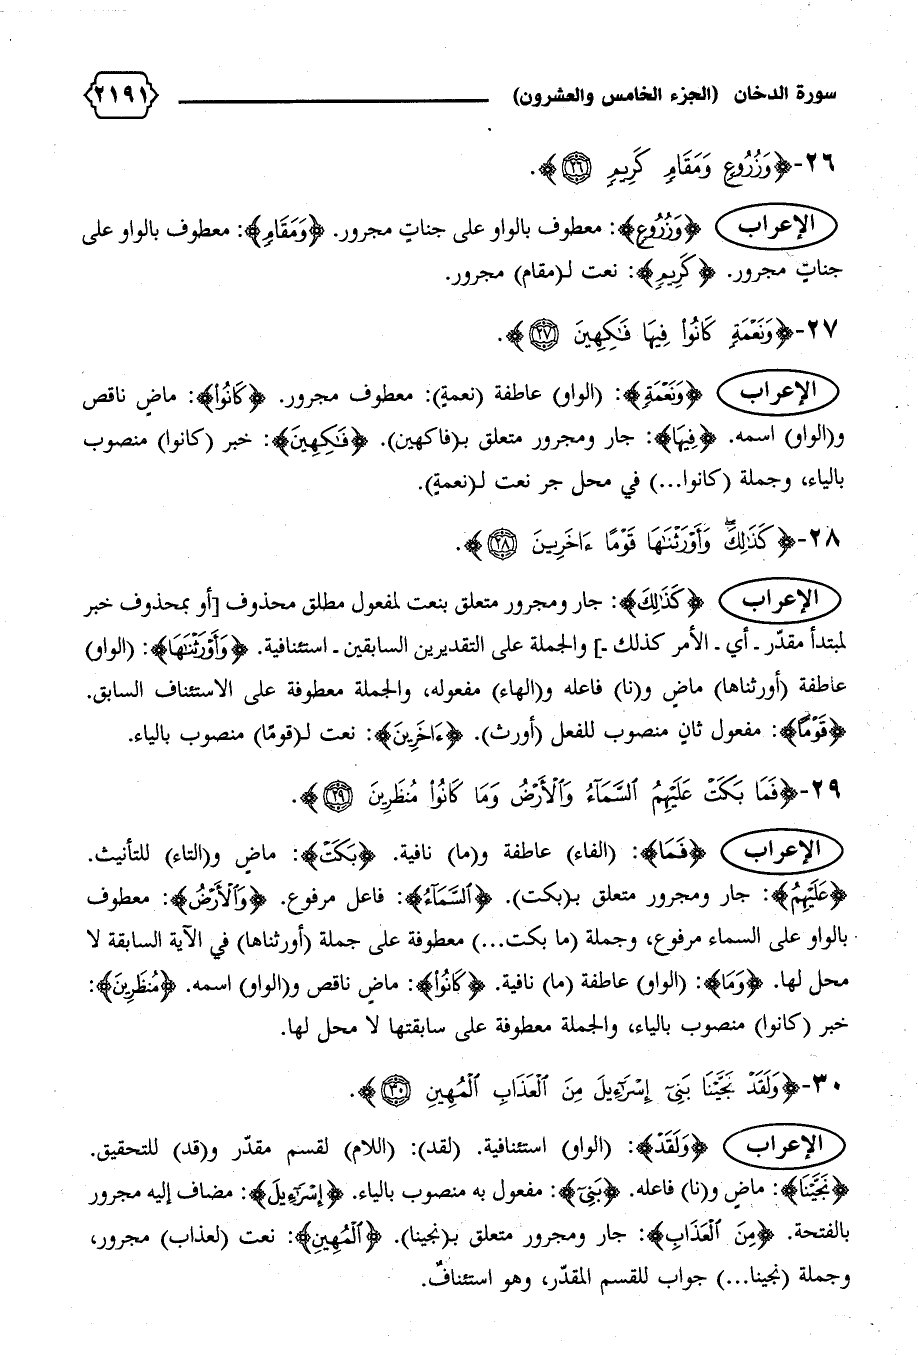 سورة الدخان (الجزء الخامس والعشرون) ٢١٩١
٢٦-﴿وَزُرُوعٍ وَمَقَامٍ كَرِيمٍ ٢٦﴾.
الإعراب ﴿وَزُرُوعٍ﴾: معطوف بالواو على جناتٍ مجرور. ﴿وَمَقَامٍ﴾: معطوف بالواو على
جناتٍ مجرور. ﴿كَرِيمٍ﴾: نعت لـ(مقام) مجرور.
٢٧-﴿وَنَعْمَةٍ كَانُوا۟ فِيهَا فَـٰكِهِينَ ٢٧﴾.
الإعراب ﴿وَنَعْمَةٍ﴾: (الواو) عاطفة (نعمةٍ): معطوف مجرور. ﴿كَانُوا۟﴾: ماضٍ ناقص
و(الواو) اسمه. ﴿فِيهَا﴾: جار ومجرور متعلق بـ(فاكهين). ﴿فَـٰكِهِينَ﴾: خبر (كانوا) منصوب
بالياء، وجملة (كانوا...) في محل جر نعت لـ(نعمةٍ).
٢٨-﴿كَذَٰلِكَ ۖ وَأَوْرَثْنَـٰهَا قَوْمًا ءَاخَرِينَ ٢٨﴾.
الإعراب ﴿كَذَٰلِكَ﴾: جار ومجرور متعلق بنعت لمفعول مطلق محذوف [أو بمحذوف خبر
لمبتدأ مقدّر ـ أي ـ الأمر كذلك ـ] والجملة على التقديرين السابقين ـ استئنافية. ﴿وَأَوْرَثْنَـٰهَا﴾: (الواو)
عاطفة (أورثناها) ماضٍ و(نا) فاعله و(الهاء) مفعوله، والجملة معطوفة على الاستئناف السابق.
﴿قَوْمًا﴾: مفعول ثانٍ منصوب للفعل (أورث). ﴿ءَاخَرِينَ﴾: نعت لـ(قومًا) منصوب بالياء.
٢٩-﴿فَمَا بَكَتْ عَلَيْهِمُ ٱلسَّمَآءُ وَٱلْأَرْضُ وَمَا كَانُوا۟ مُنظَرِينَ ٢٩﴾.
الإعراب ﴿فَمَا﴾: (الفاء) عاطفة و(ما) نافية. ﴿بَكَتْ﴾: ماضٍ و(التاء) للتأنيث.
﴿عَلَيْهِمُ﴾: جار ومجرور متعلق بـ(بكت). ﴿ٱلسَّمَآءُ﴾: فاعل مرفوع. ﴿وَٱلْأَرْضُ﴾: معطوف
بالواو على السماء مرفوع، وجملة (ما بكت...) معطوفة على جملة (أورثناها) في الآية السابقة لا
محل لها. ﴿وَمَا﴾: (الواو) عاطفة (ما) نافية. ﴿كَانُوا۟﴾: ماضٍ ناقص و(الواو) اسمه. ﴿مُنظَرِينَ﴾:
خبر (كانوا) منصوب بالياء، والجملة معطوفة على سابقتها لا محل لها.
٣٠-﴿وَلَقَدْ نَجَّيْنَا بَنِىٓ إِسْرَٰٓءِيلَ مِنَ ٱلْعَذَابِ ٱلْمُهِينِ ٣٠﴾.
الإعراب ﴿وَلَقَدْ﴾: (الواو) استئنافية. (لقد): (اللام) لقسم مقدّر و(قد) للتحقيق.
﴿نَجَّيْنَا﴾: ماضٍ و(نا) فاعله. ﴿بَنِىٓ﴾: مفعول به منصوب بالياء. ﴿إِسْرَٰٓءِيلَ﴾: مضاف إليه مجرور
بالفتحة. ﴿مِنَ ٱلْعَذَابِ﴾: جار ومجرور متعلق بـ(نجينا). ﴿ٱلْمُهِينِ﴾: نعت (لعذاب) مجرور،
وجملة (نجينا...) جواب للقسم المقدّر، وهو استئنافٌ.